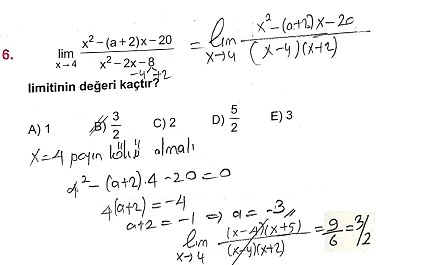 6. lim x→4 (x² − (a+2)x − 20)/(x² − 2x − 8) = lim x→4 (x² − (a+2)x − 20)/((x−4)(x+2))
−4 +2
limitinin değeri kaçtır?
A) 1 B) 3/2 C) 2 D) 5/2 E) 3
x=4 payın kökü olmalı
4² − (a+2)·4 − 20 = 0
4(a+2) = −4
a+2 = −1 ⇒ a = −3 //
lim x→4 ((x−4)(x+5))/((x−4)(x+2)) = 9/6 = 3/2